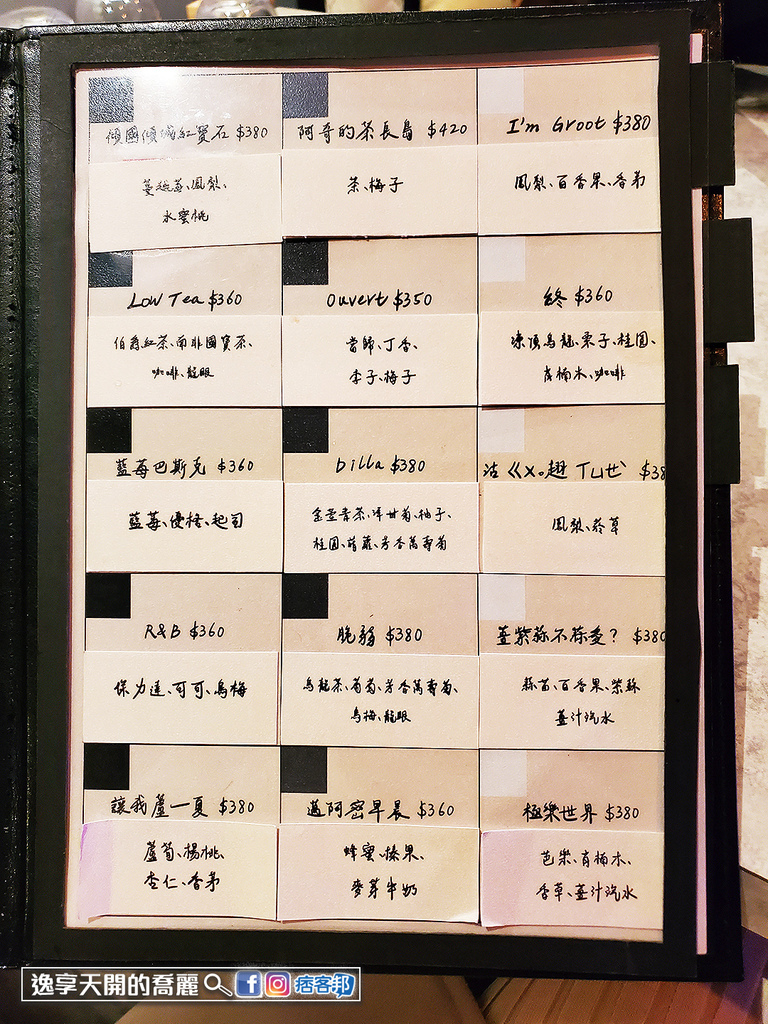 傾國傾城紅寶石 $380
蔓越莓、鳳梨、
水蜜桃
阿奇的茶長島 $420
茶、梅子
I'm Groot $380
鳳梨、百香果、香茅
Low Tea $360
伯爵紅茶、南非國寶茶、
咖啡、龍眼
Ouvert $350
當歸、丁香、
李子、梅子
終 $360
凍頂烏龍、栗子、桂圓、
岩楠木、咖啡
藍莓巴斯克 $360
藍莓、優格、起司
Dilla $380
金萱青茶、洋甘菊、柚子、
桂圓、葫蘆、芳香萬壽菊
沽ㄍㄨ。趐ㄒㄩㄝˋ $38
鳳梨、菸草
R&B $360
保力達、可可、烏梅
脆弱 $380
烏龍茶、葡萄、芳香萬壽菊、
烏梅、龍眼
薑紫蘇不蒜愛？ $380
蒜苗、百香果、紫蘇
薑汁汽水
讓我蘆一夏 $380
蘆筍、楊桃、
杏仁、香茅
邁阿密早晨 $360
蜂蜜、榛果、
麥芽牛奶
極樂世界 $380
芭樂、肖楠木、
香草、薑汁汽水
逸享天開的喬麗 痞客邦